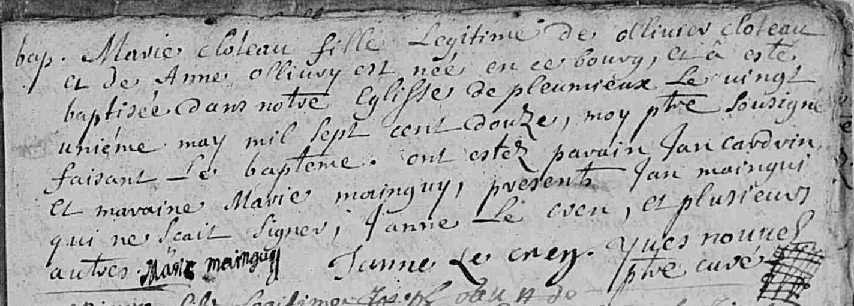 bap. Marie cloteau fille Legitime de ollivier cloteau
et de Anne ollivry est née en ce bourg, et à esté
baptisée dans notre Eglisse de pleumieux Le vingt
uniéme may mil sept cent douze, moy ptre sousigné
faisant Le bapteme. ont estez parain Jan cardvin
et maraine Marie mainguy, presents Jan maingui
qui ne scait signer, Janne Le cren, et plusieurs
autres. Marie mainguy Janne Le cren. Yves nouvel
ptre curé
Legitime